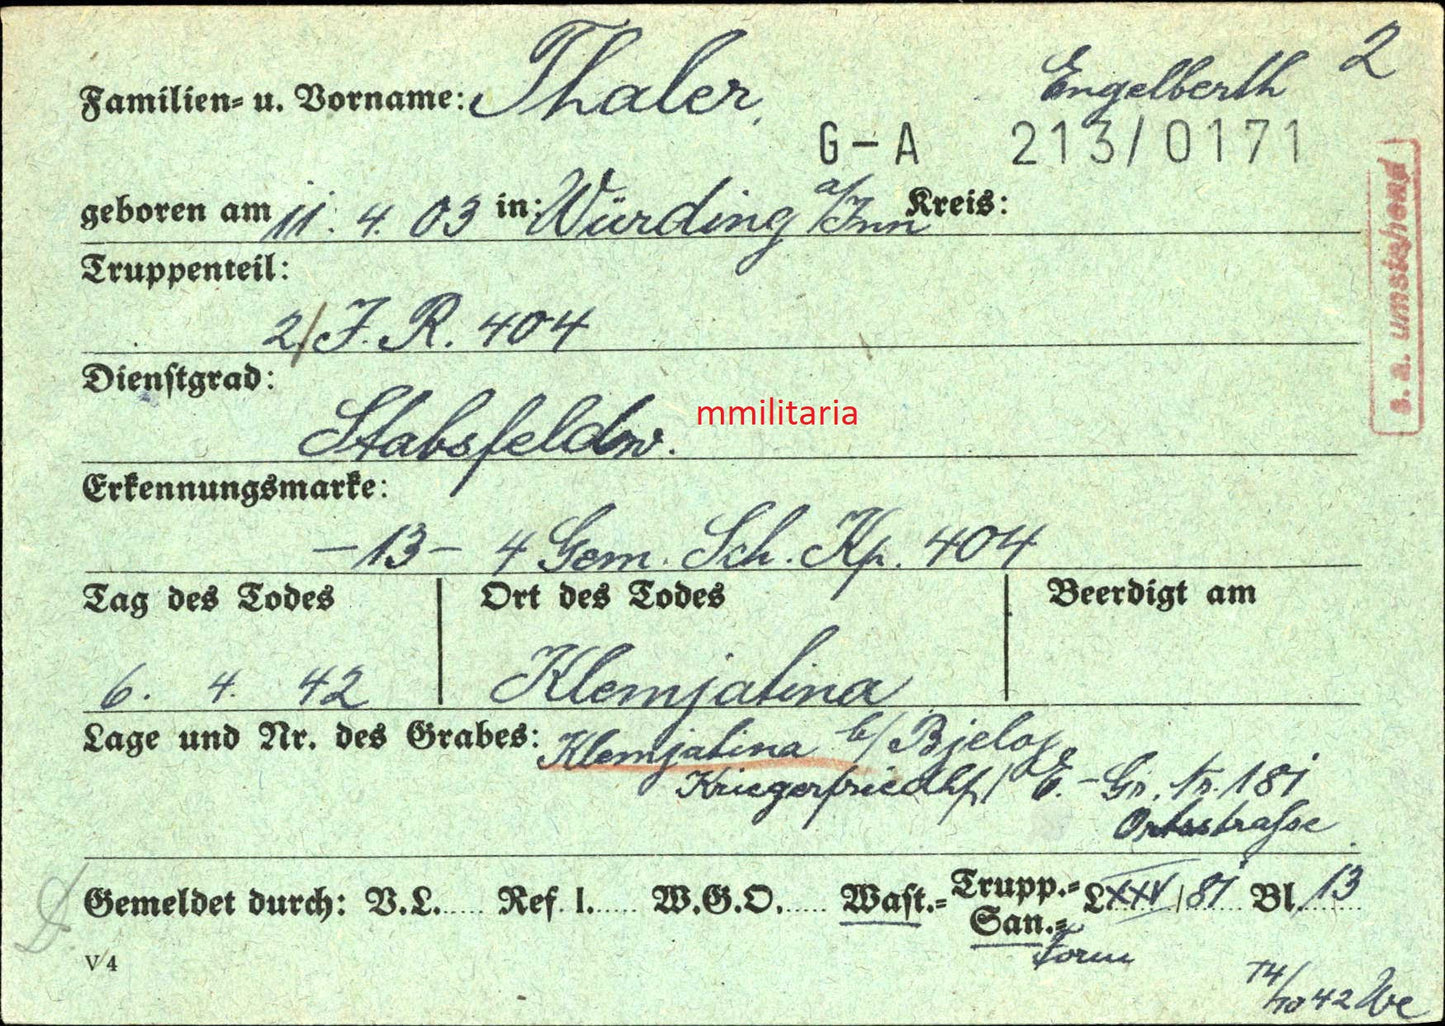 2
Familien- u. Vorname: Thaler, Engelberth
G-A 213/0171
geboren am 11. 4. 03 in: Würding a/Inn Kreis:
s. a. umstehend
Truppenteil:
2/J. R. 404
Dienstgrad:
Stabsfeldw.
mmilitaria
Erkennungsmarke:
-13- 4 Gem. Sch. Kp. 404
Tag des Todes Ort des Todes Beerdigt am
6. 4. 42 Klemjatina
Lage und Nr. des Grabes: Klemjatina b/ Bjeloj
Kriegerfriedhf/ E.-Gr. Nr. 181
Ortsstraße
Gemeldet durch: V.L...... Ref. I...... W.G.O...... Wast.= Trupp.= LXXV/81 Bl. 13
San.=
Form
V/4
42